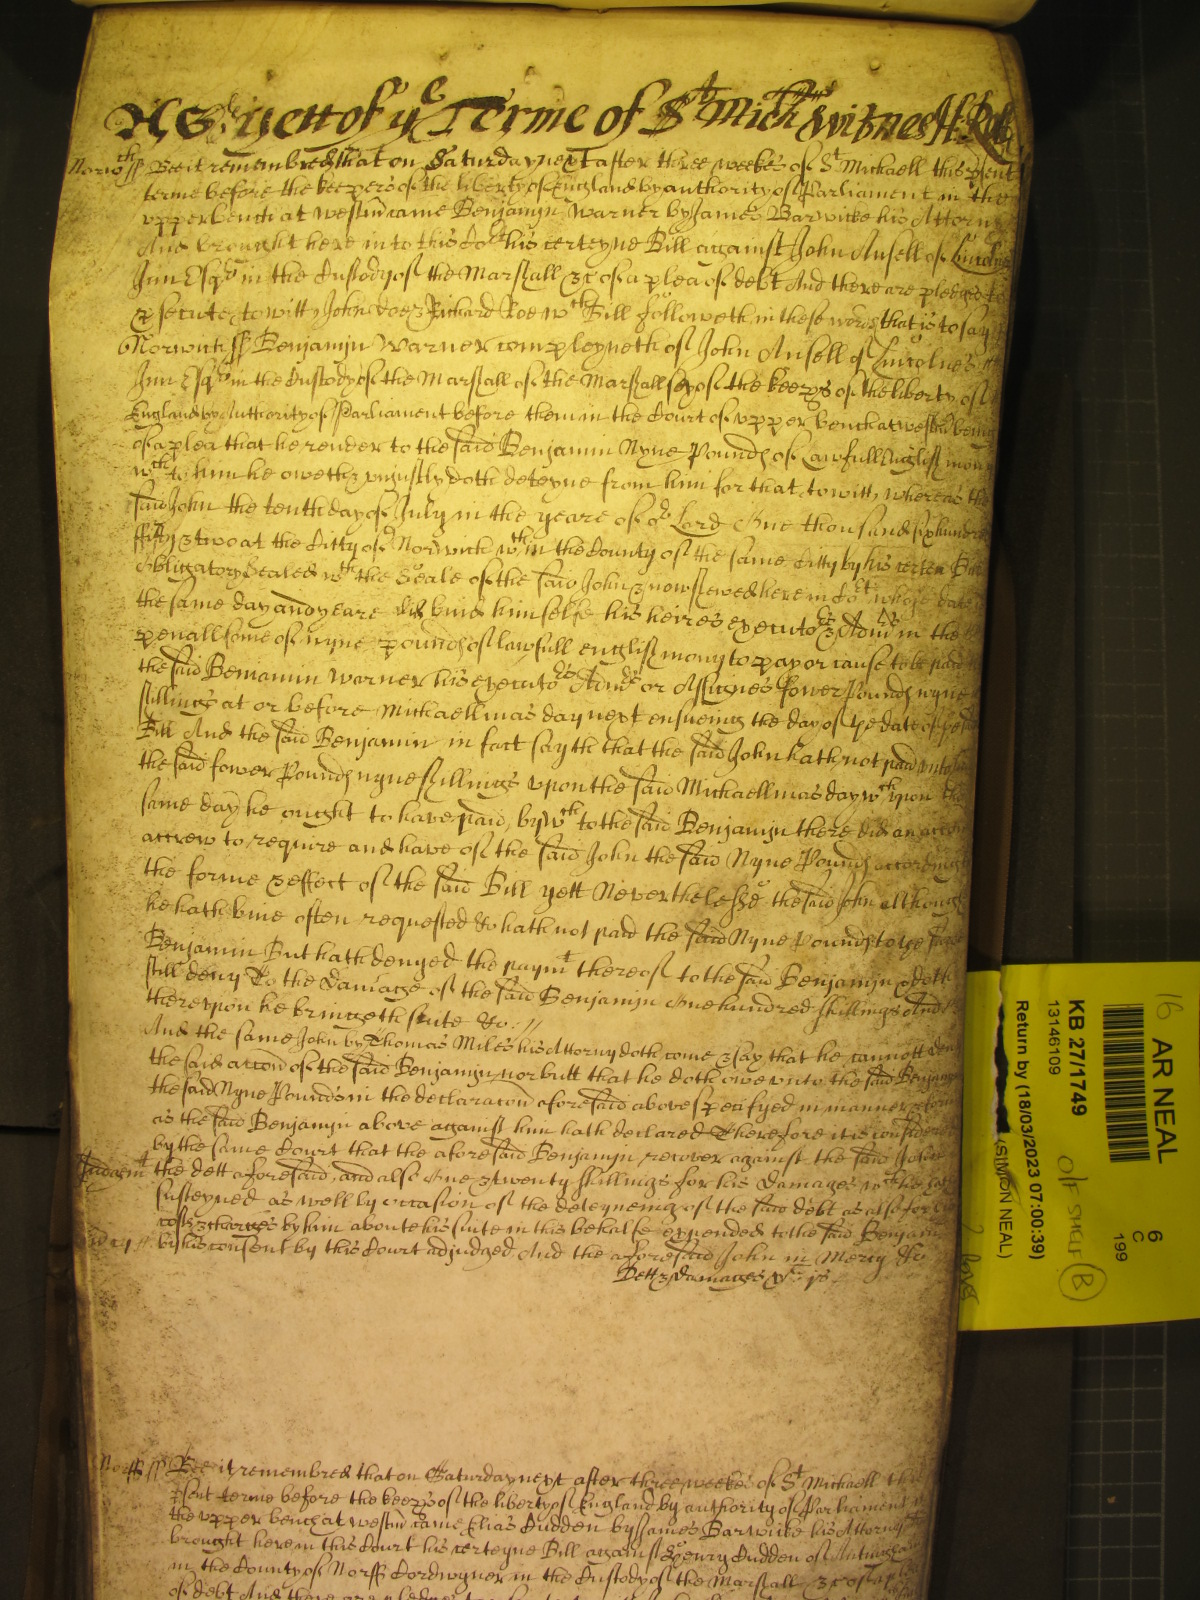 As yett of ye Terme of St Mich witnes H: Roll
Norwch ss Bee it remembred that on Saturday next after three weekes of St Michaell this psent
terme before the keepers of the liberty of England by authority of Parliament in the
vpper bench at westm came Benjamyn Warner by James Barwicke his Attorn
And brought here into this Cort his certeyne Bill against John Ansell of Lincolnes
Inn Esqr in the Custody of the Marshall &c of a plea of debt And there are pledges to
psecute, to witt, John Doe & Richard Roe wch Bill followeth in these words that is to say
Norwich ss Benjamyn Warner compleyneth of John Ansell of Lincolnes
Inn Esqr in the Custody of the Marshall of the Marshallsey of the keeps of the liberty of
England by Authority of Parliament before them in the Court of vpper bench at westm being
of a plea that he render to the said Benjamin Nyne Pounds of Lawfull English mony
wch to him he oweth & vniustly doth deteyne from him for that, to witt, whereas the
said John the tenth day of July in the yeare of or Lord One thousand six hundred
fifty & two at the Citty of Norwich wthin the County of the same Citty by his certen Bill
Obligatory Sealed wth the Seale of the said John & now shewed here in Cort whose date
the same day and yeare did bind himselfe his heires executors & Admrs in the
penall some of nyne pounds of lawfull english mony to pay or cause to be paid to
the said Beniamin Warner his executors Admrs or Assignes fower Pounds nyne
shillings at or before Michaellmas day next ensueing the day of the date of the said
Bill And the said Benjamin in fact sayth that the said John hath not paid vnto him
the said fower Pounds nyne shillings vpon the said Michaellmas day wch vpon the
same day he ought to have paid, by wch to the said Benjamyn there did an accon
accrew to require and have of the said John the said Nyne Pounds according to
the forme & effect of the said Bill yett Neverthelesse the said John although
he hath bine often requested &c hath not paid the said Nyne Pounds to the said
Benjamin But hath denyed the paymt thereof to the said Benjamyn & doth
still deny To the Damage of the said Benjamyn One hundred shillings And
therevpon he bringeth suite &c: //
And the same John by Thomas Miles his Attorny doth come & say that he cannott deny
the said accon of the said Benjamyn nor butt that he doth owe vnto the said Benjamyn
the said Nyne Pounds in the declaracon aforesaid above specifyed in manner & forme
as the said Benjamyn above against him hath declared Therefore it is considered
by the same Court that the aforesaid Benjamyn recover against the said John
Judgemt the dett aforesaid, and also One & twenty shillings for his Damages wch he hath
susteyned as well by occasion of the deteyneing of the said debt as also for his
costs & charges by him about his suite in this behalfe expended to the said Benjamyn
Mercy // by his consent by this Court adjudged And the aforesaid John in Mercy &c
Dett & damages xli js.
Norff ss Bee it remembred that on Saturday next after three weekes of St Michaell this
psent terme before the keeps of the liberty of England by authority of Parliament in
the vpper bench at westm came Elias Dudden by James Barwicke his Attorny
brought here in this Court his certeyne Bill against Henry Dudden of
in the County of Norff Cordwyner in the Custody of the Marshall &c of a plea
of debt And there are pledges
16 AR NEAL
KB 27/1749
13146109
Return by (18/03/2023 07:00:39)
(SIMON NEAL)
6
C
199
O/F SHELF B